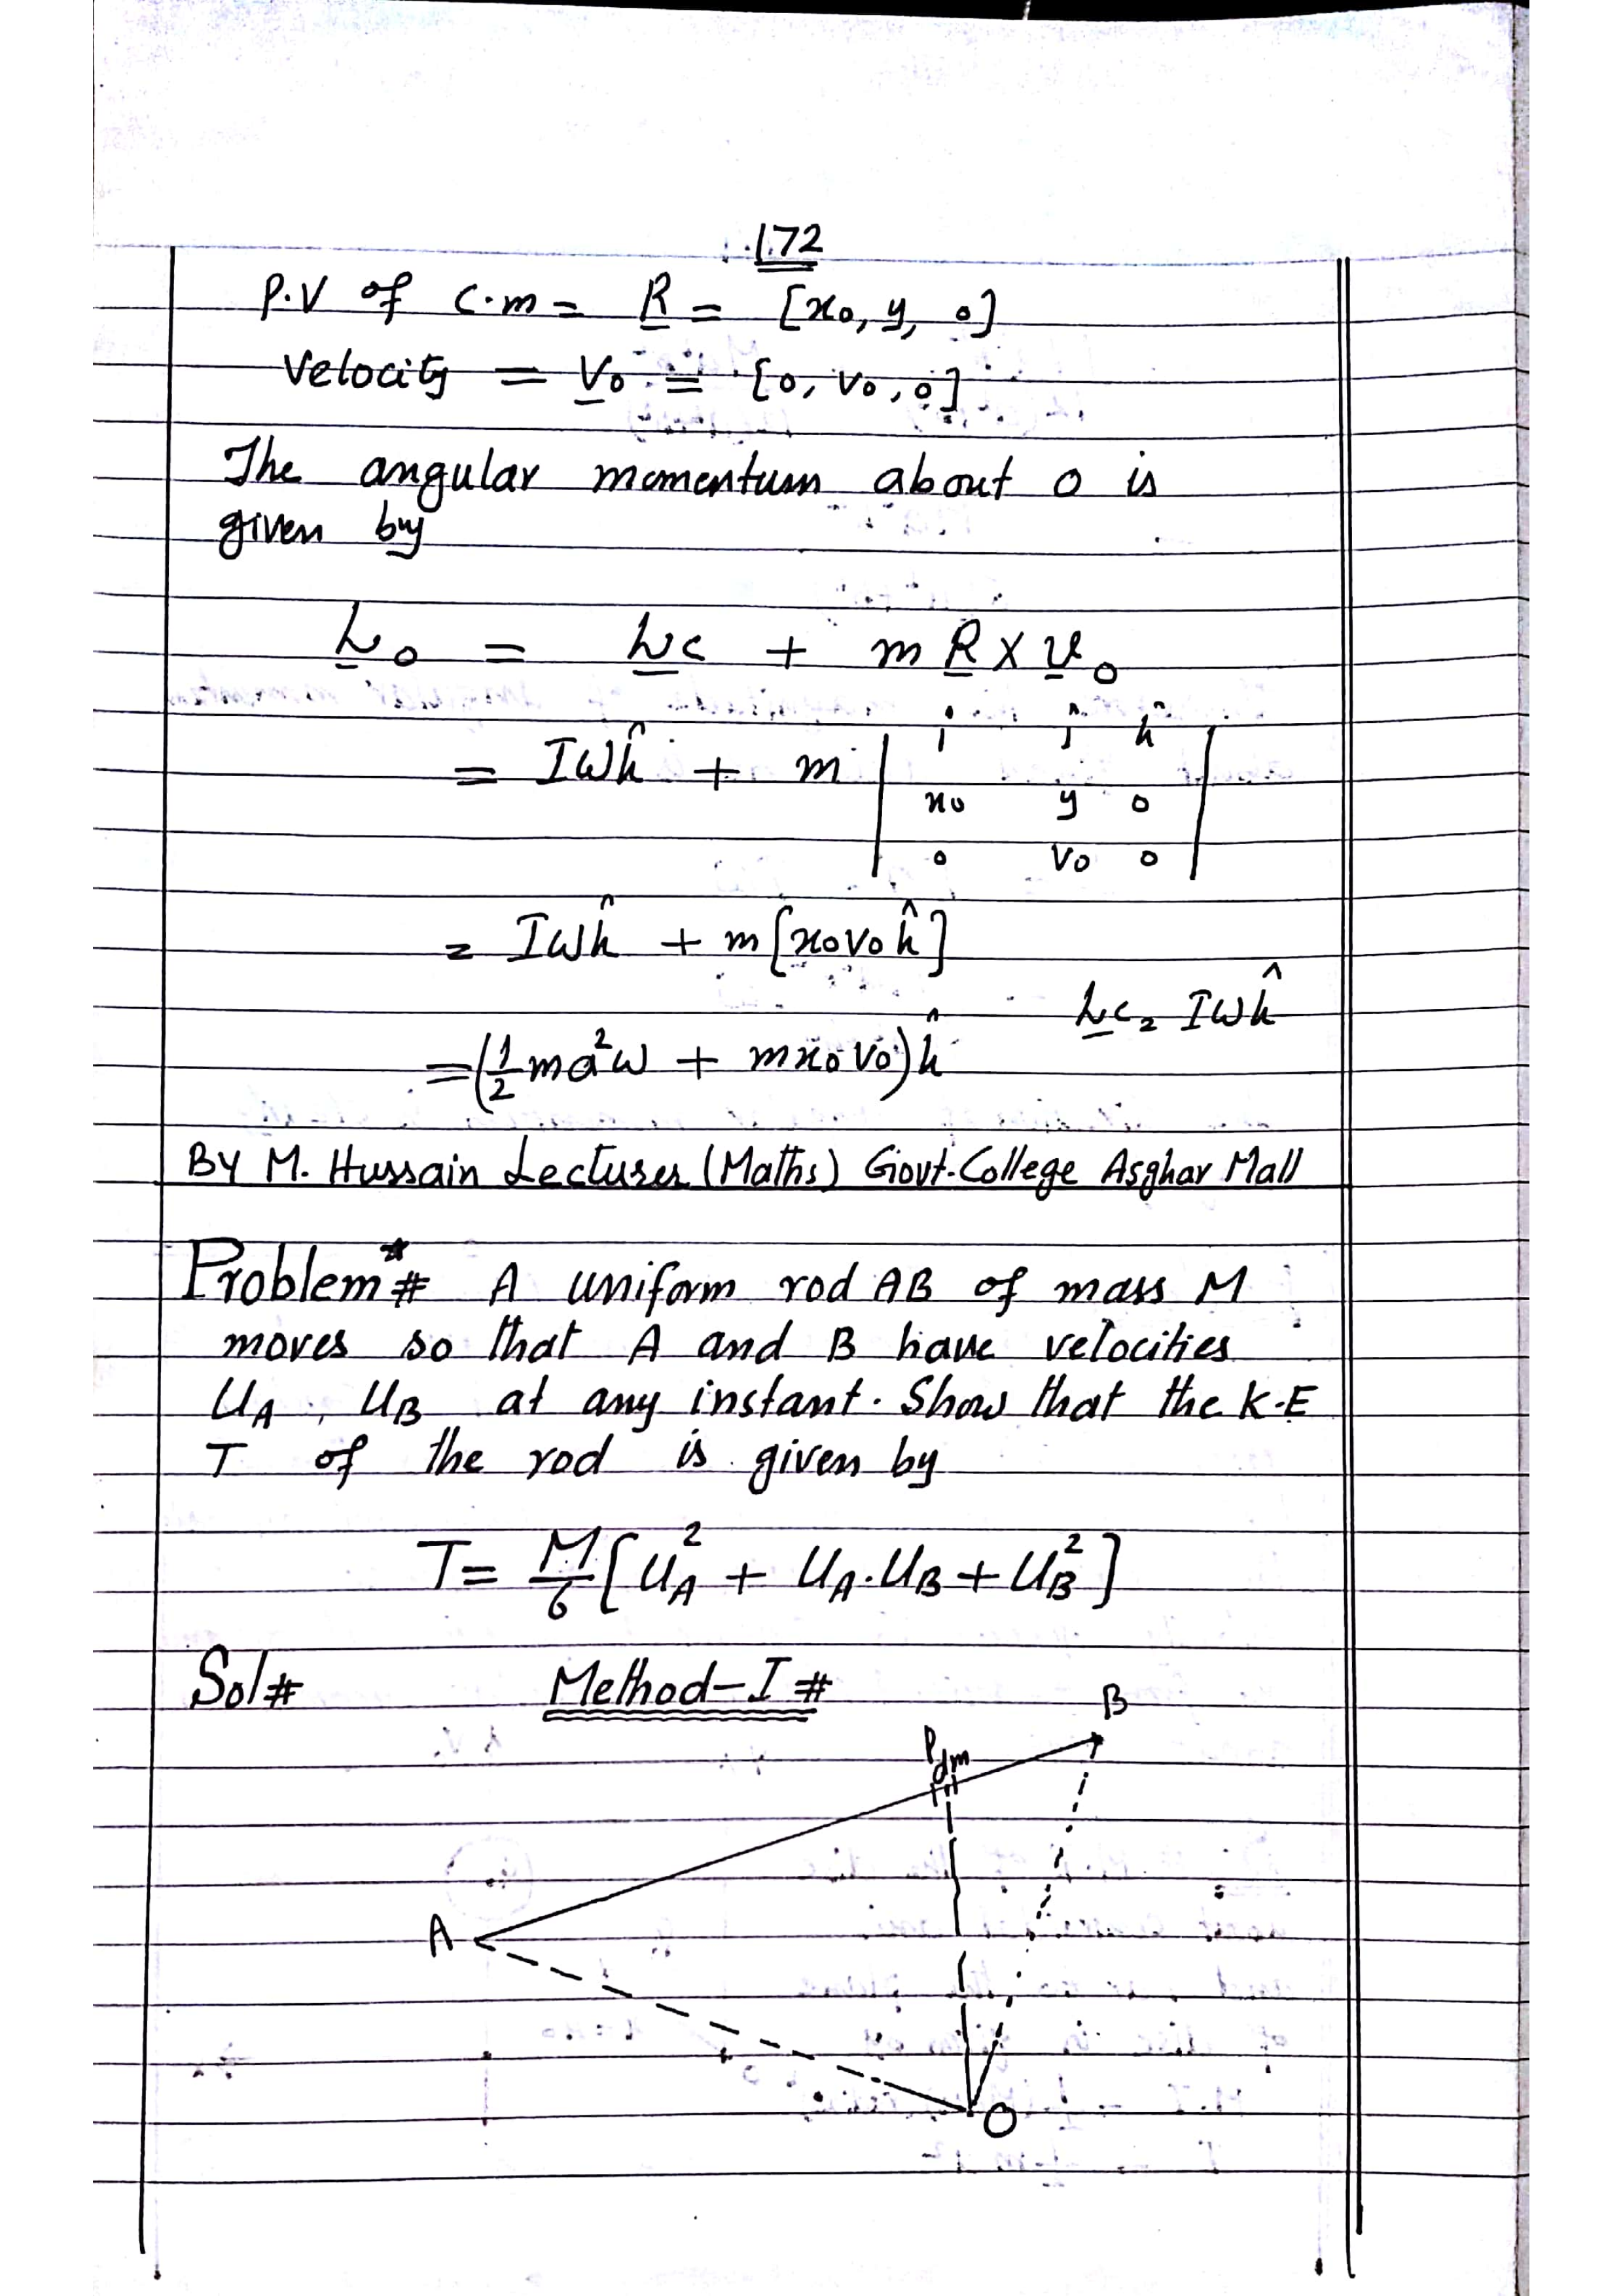 172
P.V of C.m = R = [x₀, y, 0]
Velocity = V₀ = [0, v₀, 0]
The angular momentum about 0 is
given by
L₀ = Lc + m R × v₀
= Iωk̂ + m | î ĵ k̂ |
| x₀ y 0 |
| 0 v₀ 0 |
= Iωk̂ + m[x₀v₀k̂]
Lc = Iωk̂
= (1/2 ma²ω + mx₀v₀)k̂
By M. Hussain Lecturer (Maths) Govt. College Asghar Mall
Problem*# A uniform rod AB of mass M
moves so that A and B have velocities
U_A, U_B at any instant. Show that the K.E
T of the rod is given by
T = M/6 [U_A² + U_A.U_B + U_B²]
Sol# Method-I#
B
P
dm
A
O